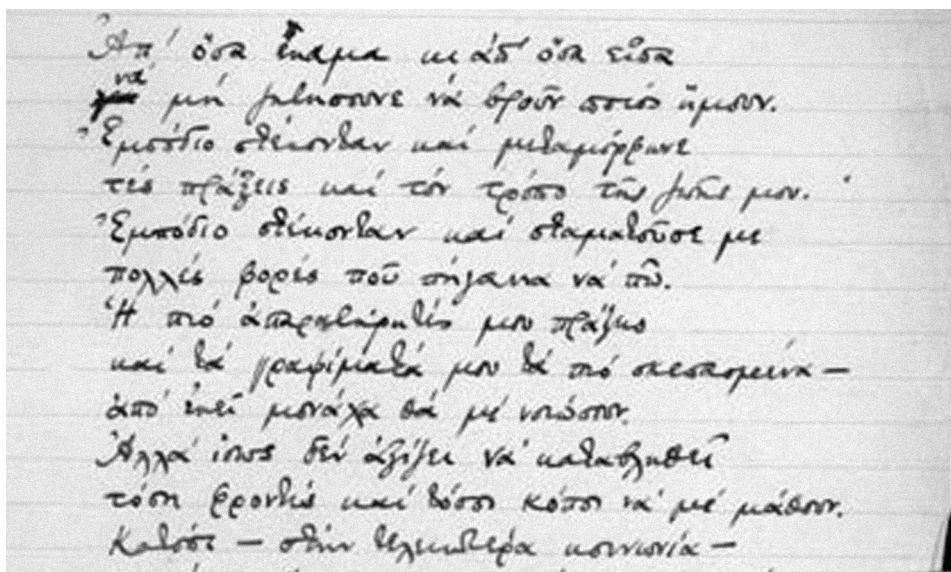 Ἀπ' ὅσα ἔκαμα κι ἀπ' ὅσα εἶπα
νὰ μὴ ζητήσουνε νὰ βροῦν ποιὸς ἤμουν.
Ἐμπόδιο στέκονταν καὶ μεταμόρφωνε
τὲς πράξεις καὶ τὸν τρόπο τῆς ζωῆς μου.
Ἐμπόδιο στέκονταν καὶ σταματοῦσε με
πολλὲς φορὲς ποῦ πήγαινα νὰ πῶ.
Ἡ πιὸ ἀπαρατήρητές μου πράξεις
καὶ τὰ γραψίματά μου τὰ πιὸ σκεπασμένα —
ἀπὸ ἐκεῖ μονάχα θὰ μὲ νοιώσουν.
Ἀλλὰ ἴσως δὲν ἀξίζει νὰ καταβληθεῖ
τόση φροντὶς καὶ τόσος κόπος νὰ μὲ μάθουν.
Κατόπι — στὴν τελειοτέρα κοινωνία —